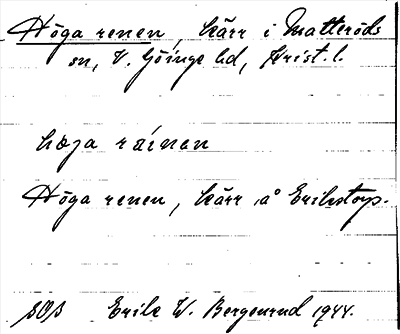 Höga renen, kärr i Matteröds
sn, V. Göinge hd, Krist. l.
høga ráinen
Höga renen, kärr å Erikstorp.
Erik W. Bergenrud 1944.